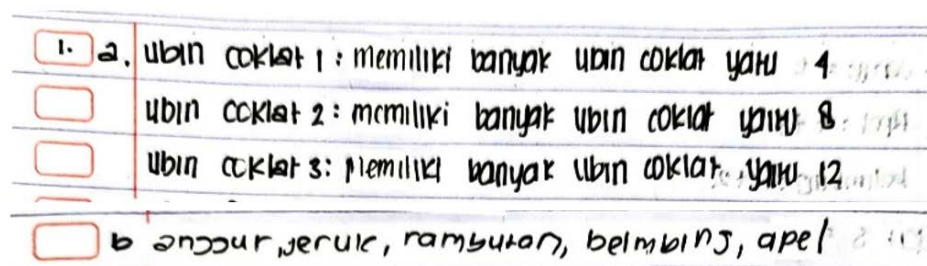 1. a. ubin coklat 1 : memiliki banyak ubin coklat yaitu 4
ubin coklat 2 : memiliki banyak ubin coklat yaitu 8
ubin coklat 3 : Memiliki banyak ubin coklat yaitu 12
b anggur, jeruk, rambutan, belmbing, apel